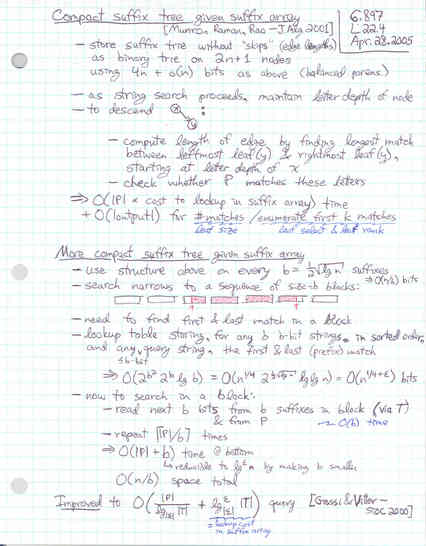 Compact suffix tree given suffix array
[Munro, Raman, Rao – J. Alg 2001]
6.897
L22.4
Apr. 28, 2005
- store suffix trie without "skips" (edge lengths)
as binary trie on 2n+1 nodes
using 4n + o(n) bits as above (balanced parens)
- as string search proceeds, maintain letter depth of node
- to descend x y :
- compute length of edge by finding longest match
between leftmost leaf(y) & rightmost leaf(y),
starting at letter depth of x
- check whether P matches these letters
⇒ O(|P| × cost to lookup in suffix array) time
+ O(|output|) for # matches / enumerate first k matches
leaf size leaf select & leaf rank
More compact suffix tree given suffix array
- use structure above on every b = ½√lg n suffixes
⇒ O(n/b) bits
- search narrows to a sequence of size-b blocks:
- need to find first & last match in a block
- lookup table storing, for any b b-bit strings in sorted order,
and any query string, the first & last (prefix) match
≤b-bit
⇒ O(2^{b²} 2^b lg b) = O(n^{1/4} 2^{½√lg n} lg lg n) = O(n^{1/4+ε}) bits
- now to search in a block:
- read next b bits from b suffixes in block (via T)
& from P → O(b) time
- repeat ⌈|P|/b⌉ times
⇒ O(|P| + b) time @ bottom
↳ reducible to lg^ε n by making b smaller
O(n/b) space total
Improved to O(|P| / lg_{|Σ|} |T| + lg^ε_{|Σ|} |T|) query [Grossi & Vitter –
STOC 2000]
= lookup cost
in suffix array